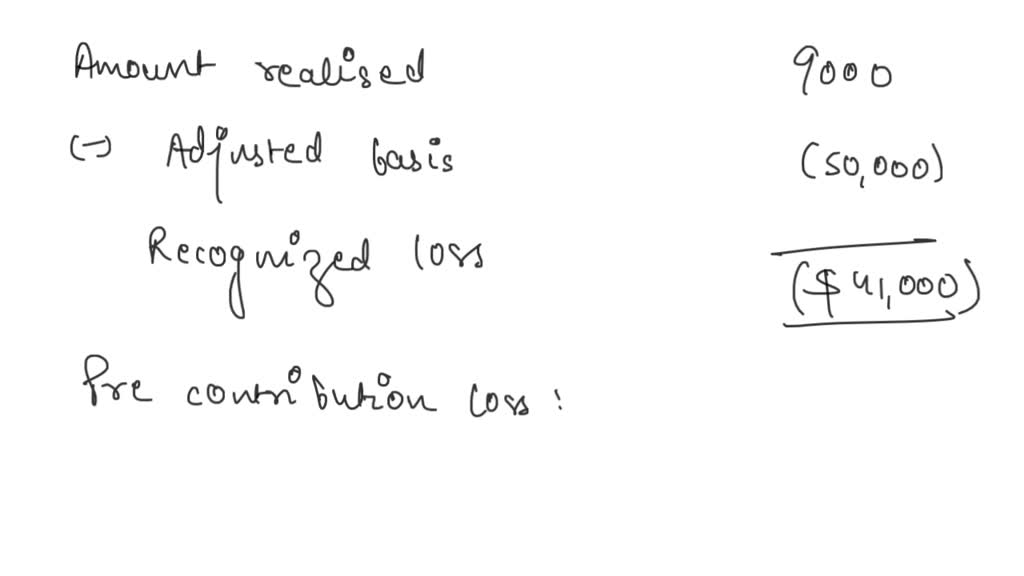 Amount realised 9000
(-) Adjusted basis (50,000)
Recognized loss ($ 41,000)
Pre contribution loss :